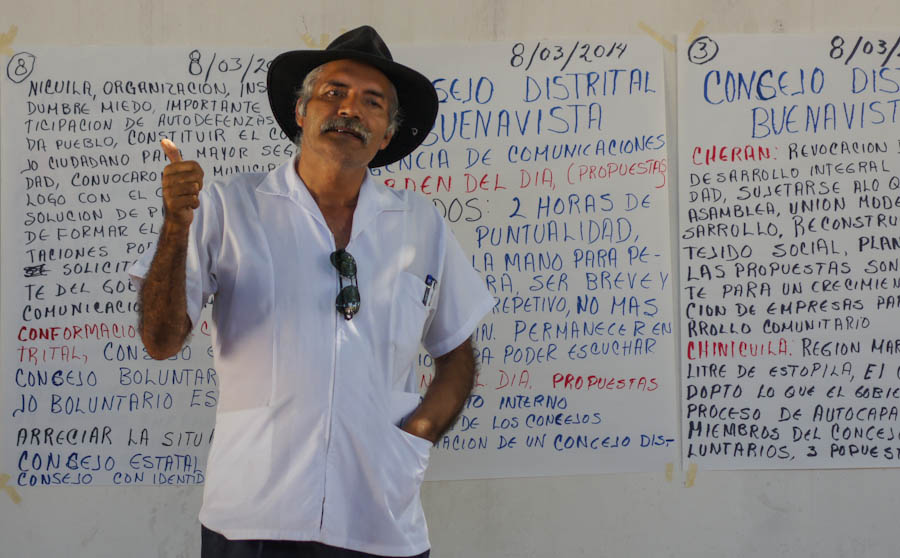 8
8/03/2
NICUILA, ORGANIZACIÓN, INS
DUMBRE MIEDO, IMPORTANTE
TICIPACION DE AUTODEFENZAS
DA PUEBLO, CONSTITUIR EL CO
JO CIUDADANO PARA MAYOR SEG
DAD, CONVOCARO MUNICIP
LOGO CON EL C
SOLUCION DE P
DE FORMAR EL
TACIONES PO
SOLICIT
TE DEL GO
COMUNICACI
CONFORMACIO
TRITAL, CONSEJO E
CONCEJO BOLUNTAR
JO BOLUNTARIO ES
ARRECIAR LA SITU
CONSEJO ESTATAL
CONSEJO CON IDENTID
8/03/2014
SEJO DISTRITAL
BUENAVISTA
GENCIA DE COMUNICACIONES
RDEN DEL DIA, (PROPUESTAS)
DOS: 2 HORAS DE
PUNTUALIDAD,
LA MANO PARA PE-
RA, SER BREVE Y
REPETIVO, NO MAS
IN. PERMANECER EN
RA PODER ESCUCHAR
L DIA. PROPUESTAS
TO INTERNO
DE LOS CONCEJOS
MACION DE UN CONCEJO DIS-
3
8/03/
CONCEJO DIS
BUENAVIST
CHERAN: REVOCACION D
DESARROLLO INTEGRAL
DAD, SUJETARSE ALO Q
ASAMBLEA, UNION MODE
SARROLLO, RECONSTRU
TEJIDO SOCIAL, PLAN
LAS PROPUESTAS SON
TE PARA UN CRECIMIEN
CION DE EMPRESAS PAR
RROLLO COMUNITARIO
CHINICUILA: REGION MAR
LITRE DE ESTOPILA, EL C
DOPTO LO QUE EL GOBIE
PROCESO DE AUTOCAPA
MIEMBROS DEL CONCEJ
LUNTARIOS, 3 POPUEST